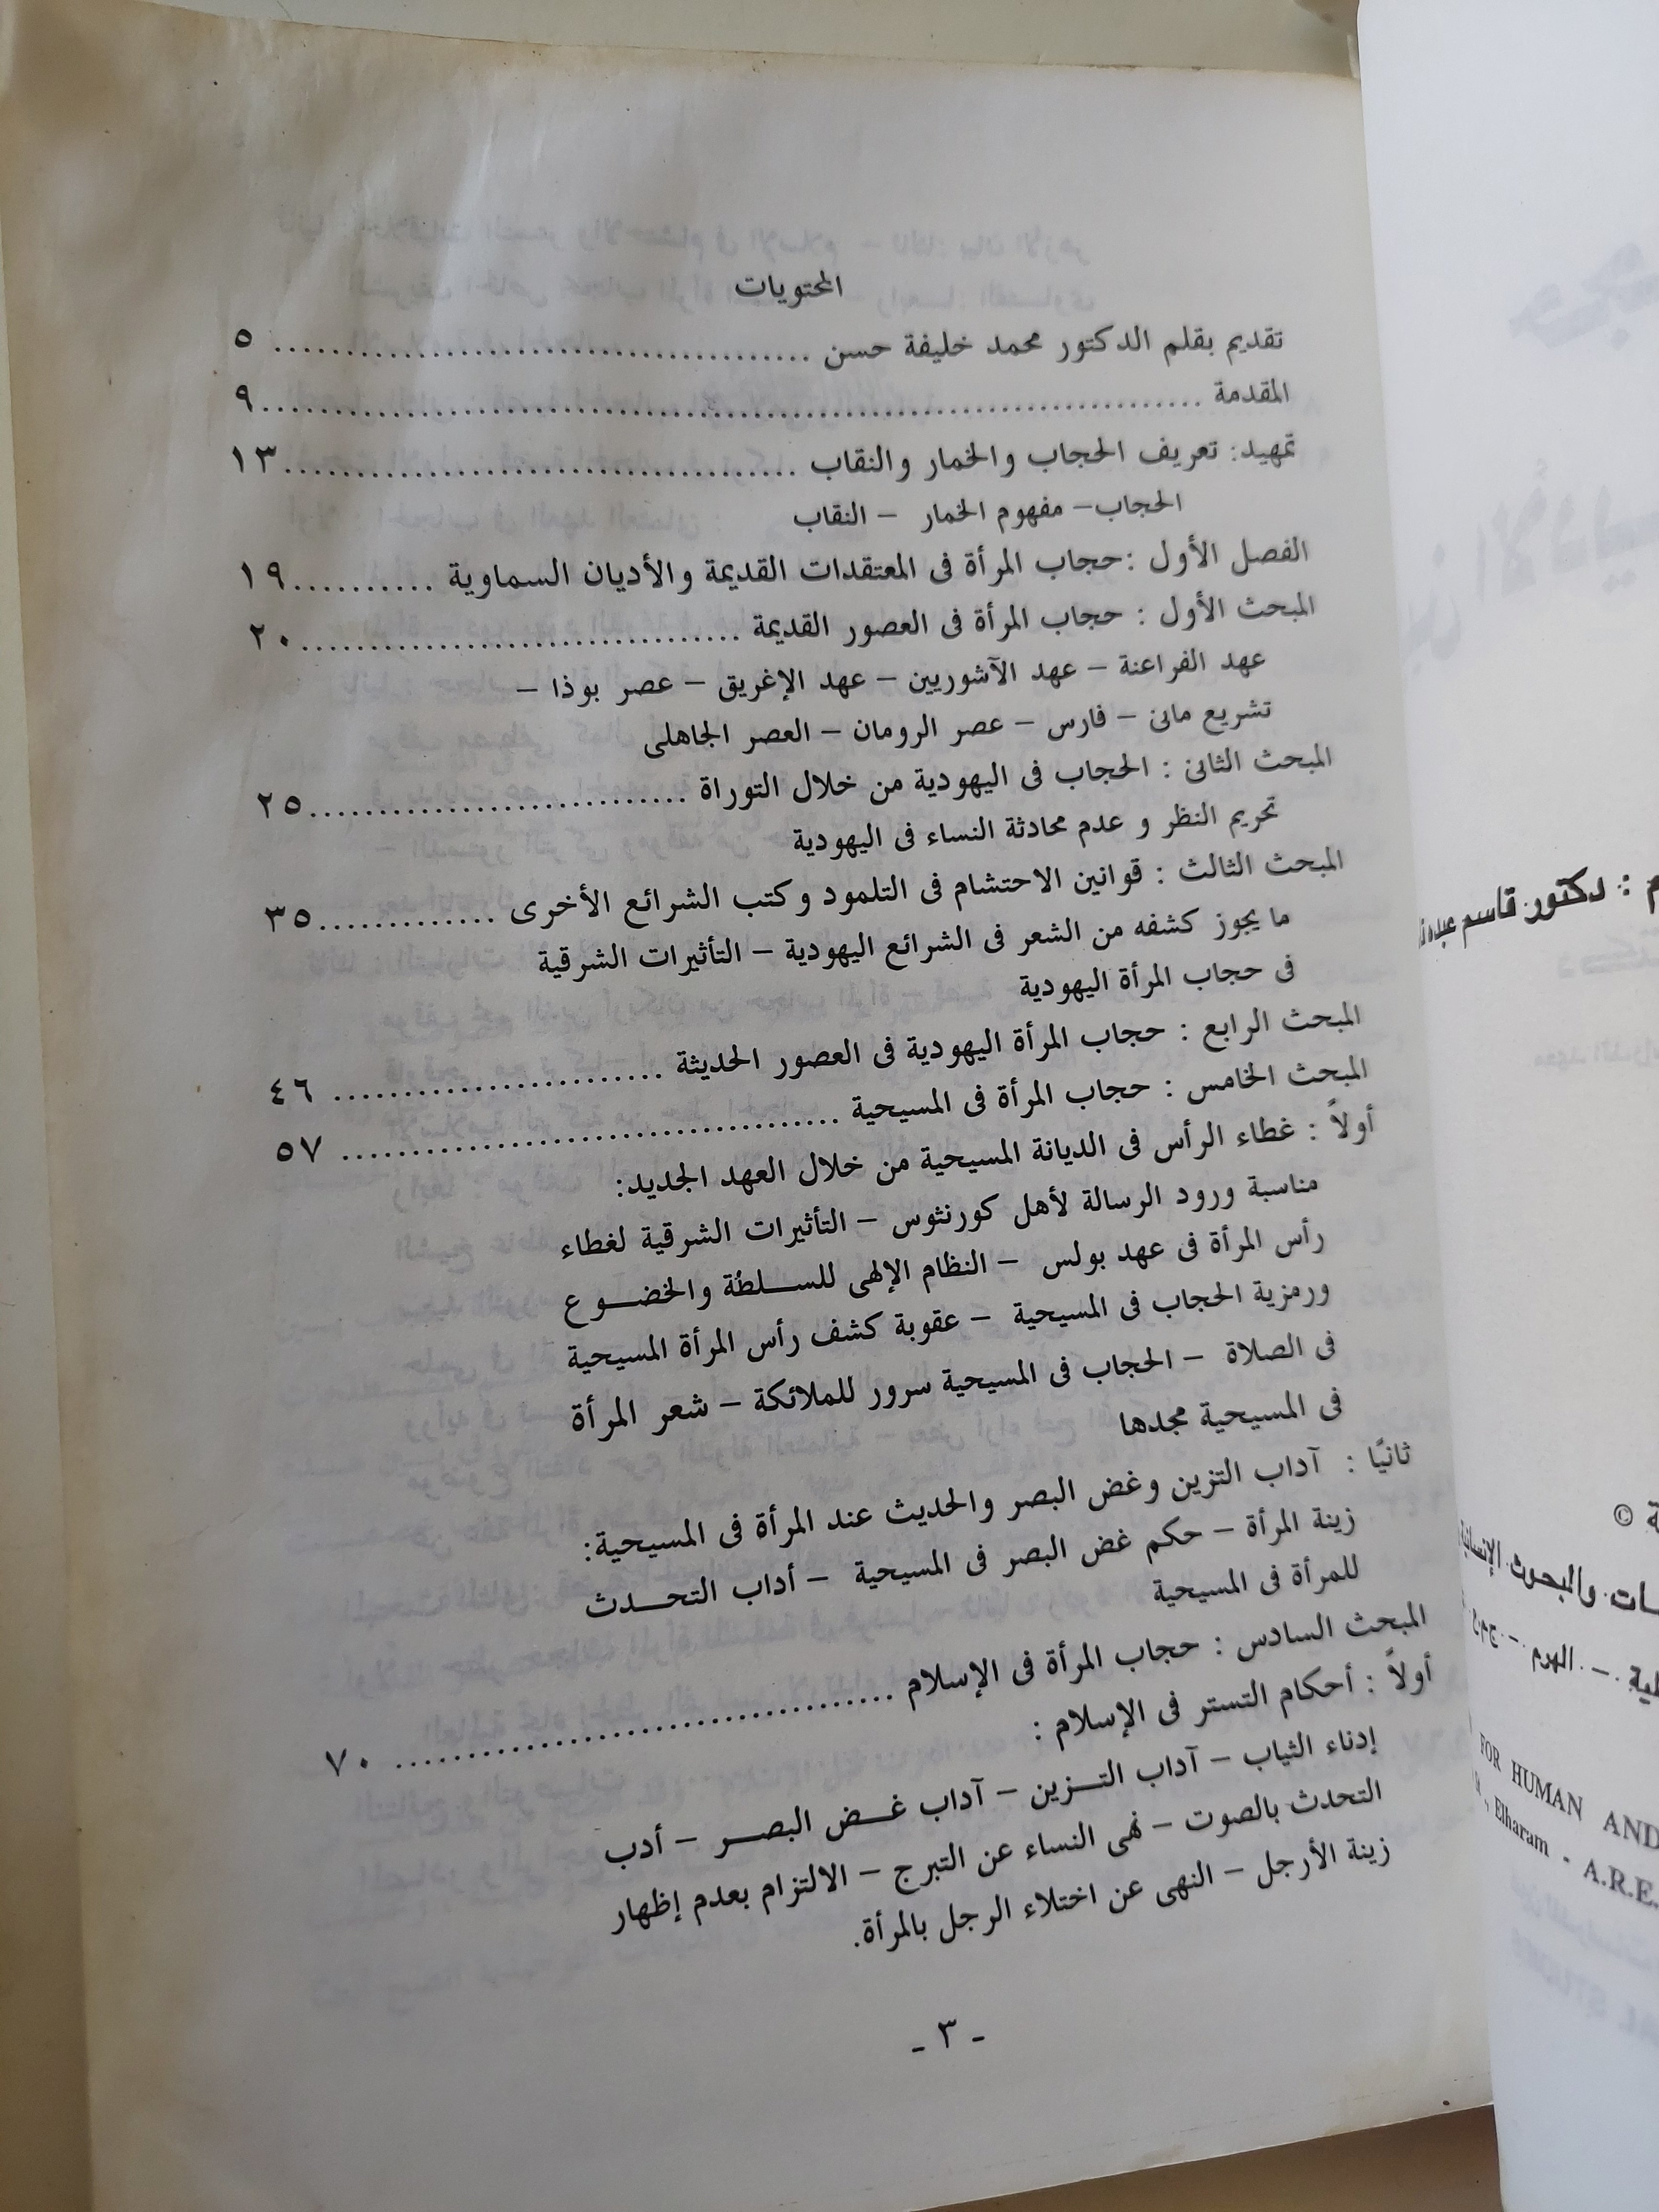 المحتويات
تقديم بقلم الدكتور محمد خليفة حسن ..................................... ٥
المقدمة .................................................................. ٩
تمهيد: تعريف الحجاب والخمار والنقاب .................................... ١٣
الحجاب– مفهوم الخمار – النقاب
الفصل الأول :حجاب المرأة فى المعتقدات القديمة والأديان السماوية .......... ١٩
المبحث الأول : حجاب المرأة فى العصور القديمة ............................... ٢٠
عهد الفراعنة – عهد الآشوريين – عهد الإغريق – عصر بوذا –
تشريع مانى – فارس – عصر الرومان – العصر الجاهلى
المبحث الثانى : الحجاب فى اليهودية من خلال التوراة ........................... ٢٥
تحريم النظر و عدم محادثة النساء فى اليهودية
المبحث الثالث : قوانين الاحتشام فى التلمود وكتب الشرائع الأخرى ............. ٣٥
ما يجوز كشفه من الشعر فى الشرائع اليهودية – التأثيرات الشرقية
فى حجاب المرأة اليهودية
المبحث الرابع : حجاب المرأة اليهودية فى العصور الحديثة ........................ ٤٦
المبحث الخامس : حجاب المرأة فى المسيحية ................................... ٥٧
أولاً : غطاء الرأس فى الديانة المسيحية من خلال العهد الجديد:
مناسبة ورود الرسالة لأهل كورنثوس – التأثيرات الشرقية لغطاء
رأس المرأة فى عهد بولس – النظام الإلهى للسلطة والخضوع
ورمزية الحجاب فى المسيحية – عقوبة كشف رأس المرأة المسيحية
فى الصلاة – الحجاب فى المسيحية سرور للملائكة – شعر المرأة
فى المسيحية مجدها
ثانيًا : آداب التزين وغض البصر والحديث عند المرأة فى المسيحية:
زينة المرأة – حكم غض البصر فى المسيحية – أداب التحدث
للمرأة فى المسيحية
المبحث السادس : حجاب المرأة فى الإسلام ................................... ٧٠
أولاً : أحكام التستر فى الإسلام :
إدناء الثياب – آداب التزين – آداب غض البصر – أدب
التحدث بالصوت – نهى النساء عن التبرج – الالتزام بعدم إظهار
زينة الأرجل – النهى عن اختلاء الرجل بالمرأة.
- ٣ -
م : دكتور قاسم عبده
ة ©
والبحوث الإنسانية
الهرم –
FOR HUMAN AND
, Elharam - A.R.E.